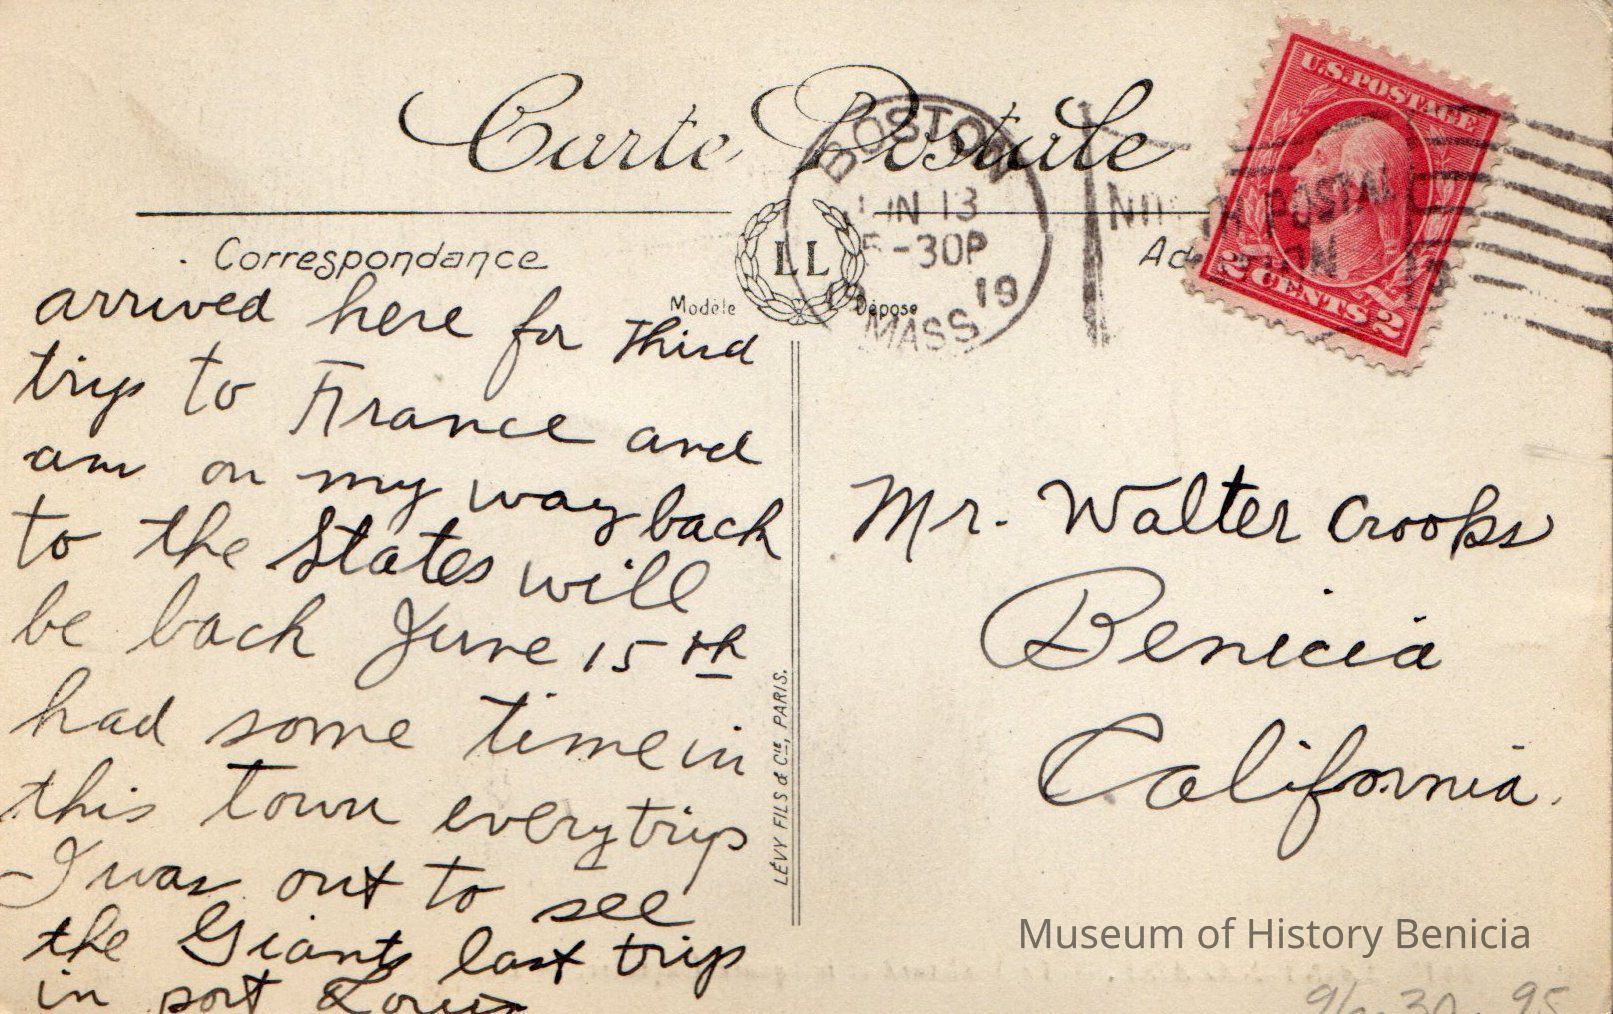 Carte Postale
BOSTON
JUN 13
5-30P
19
MASS
U.S. POSTAGE
2 CENTS 2
POSTAL
Correspondance
LL
Modèle Déposé
arrived here for third
trip to France and
am on my way back
to the States will
be back June 15th
had some time in
this town every trip
I was out to see
the Giants last trip
in port Louis
LÉVY FILS & Cie, PARIS.
Mr. Walter Crooks
Benicia
California.
Museum of History Benicia